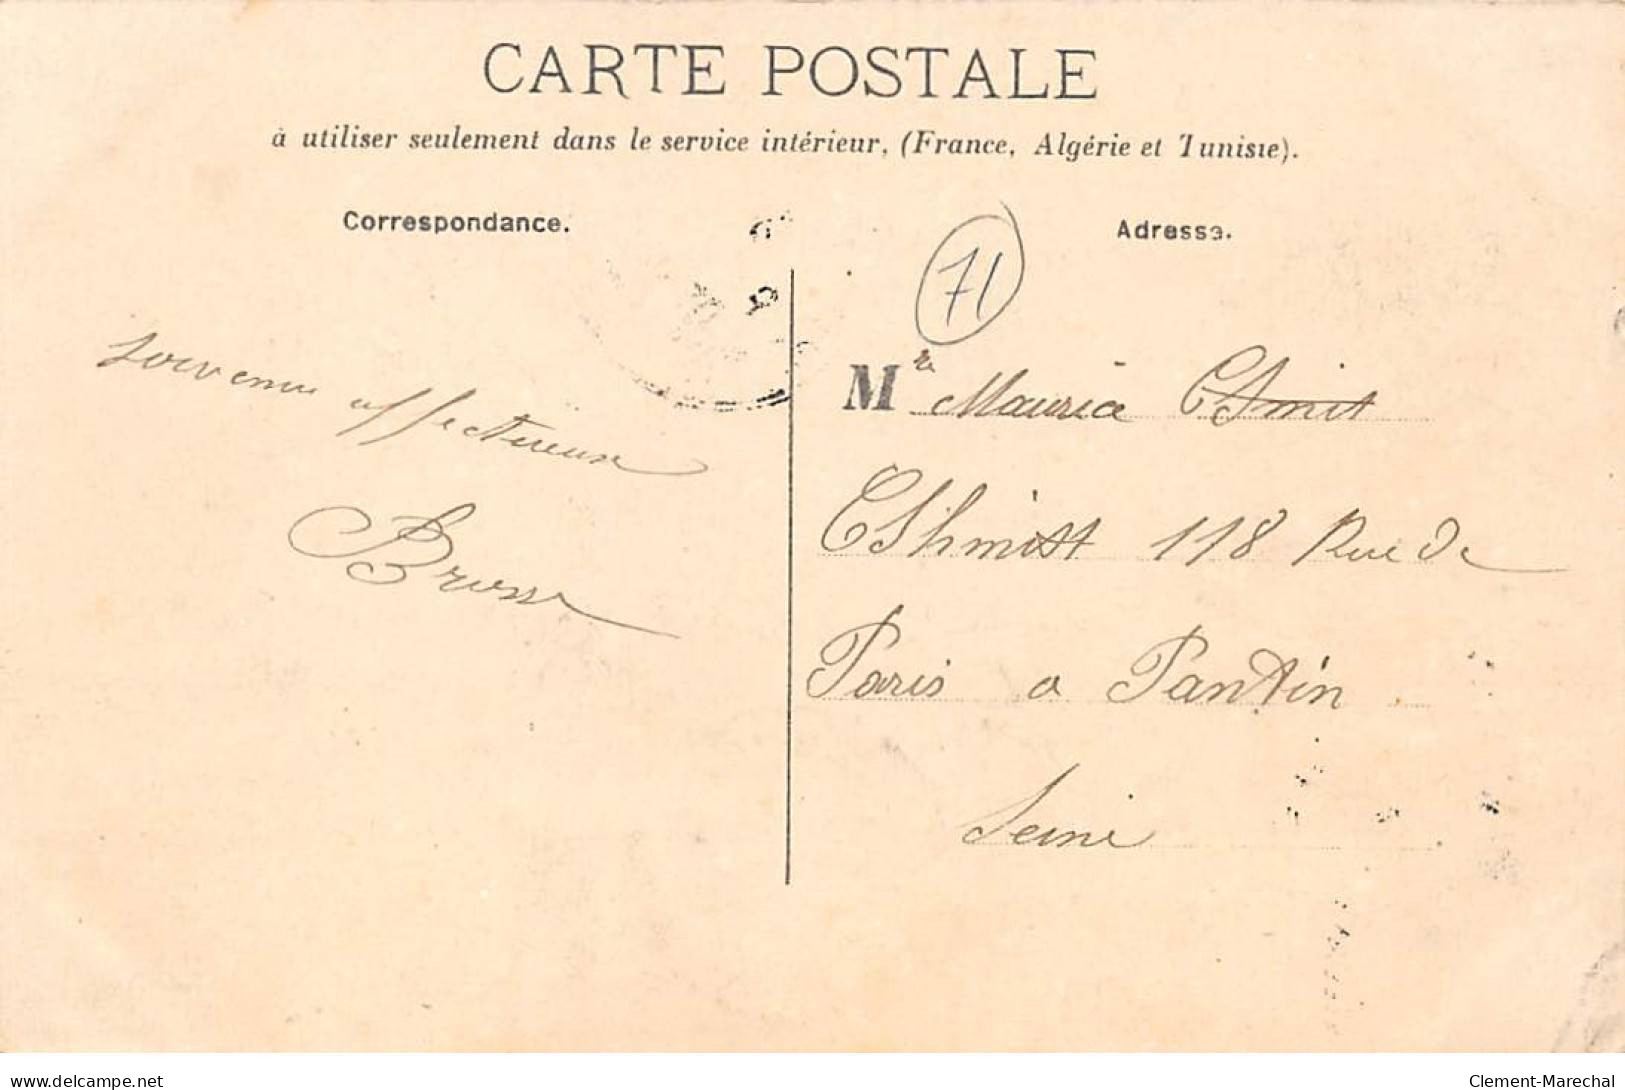 CARTE POSTALE
à utiliser seulement dans le service intérieur, (France, Algérie et Tunisie).
Correspondance.
Adresse.
71
souvenir affectueuse
Brosse
M Maurice
118 Rue de
Paris a Pantin
Seine
delcampe.net
Clement-Marechal